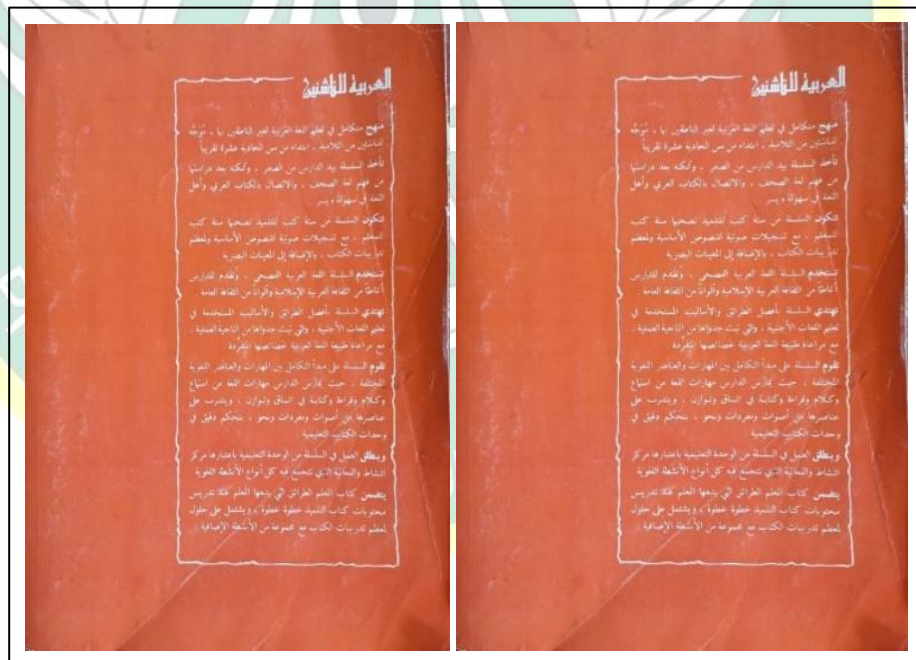 العربية للناشئين
منهج متكامل في تعليم اللغة العربية لغير الناطقين بها ، مُوَجَّه
للناشئين من التلاميذ ، ابتداء من سن الحادية عشرة تقريباً
تأخذ السلسلة بيد الدارس من الصفر ، وتمكنه بعد دراستها
من فهم لغة الصحف ، والاتصال بالكتاب العربي وأهل
اللغة في سهولة ويسر
تتكون السلسلة من ستة كتب للتلميذ تصحبها ستة كتب
للمعلم ، مع تسجيلات صوتية للنصوص الأساسية ولمعظم
تدريبات الكتاب ، بالإضافة إلى المعينات البصرية
تستخدم السلسلة اللغة العربية الفصحى ، وتقدم للدارس
أنماطاً من الثقافة العربية الإسلامية وألواناً من الثقافة العامة .
تهتدي السلسلة بأفضل الطرائق والأساليب المستخدمة في
تعليم اللغات الأجنبية ، والتي ثبت جدواها من الناحية العملية ،
مع مراعاة طبيعة اللغة العربية بخصائصها المتفرّدة
تقوم السلسلة على مبدأ التكامل بين المهارات والعناصر اللغوية
المختلفة ، حيث يمارس الدارس مهارات اللغة من استماع
وكلام وقراءة وكتابة في اتساق وتوازن ، ويتدرب على
عناصرها من أصوات ومفردات ونحو ، بتحكم دقيق في
وحدات الكتاب التعليمية
وينطلق العمل في السلسلة من الوحدة التعليمية باعتبارها مركز
النشاط والفعالية الذي تتجمع فيه كل أنواع الأنشطة اللغوية
يتضمن كتاب المعلم الطرائق التي يتبعها المعلم عند تدريس
محتويات كتاب التلميذ خطوة خطوة ، ويشتمل على حلول
لمعظم تدريبات الكتاب مع مجموعة من الأنشطة الإضافية .
العربية للناشئين
منهج متكامل في تعليم اللغة العربية لغير الناطقين بها ، مُوَجَّه
للناشئين من التلاميذ ، ابتداء من سن الحادية عشرة تقريباً
تأخذ السلسلة بيد الدارس من الصفر ، وتمكنه بعد دراستها
من فهم لغة الصحف ، والاتصال بالكتاب العربي وأهل
اللغة في سهولة ويسر
تتكون السلسلة من ستة كتب للتلميذ تصحبها ستة كتب
للمعلم ، مع تسجيلات صوتية للنصوص الأساسية ولمعظم
تدريبات الكتاب ، بالإضافة إلى المعينات البصرية
تستخدم السلسلة اللغة العربية الفصحى ، وتقدم للدارس
أنماطاً من الثقافة العربية الإسلامية وألواناً من الثقافة العامة .
تهتدي السلسلة بأفضل الطرائق والأساليب المستخدمة في
تعليم اللغات الأجنبية ، والتي ثبت جدواها من الناحية العملية ،
مع مراعاة طبيعة اللغة العربية بخصائصها المتفرّدة
تقوم السلسلة على مبدأ التكامل بين المهارات والعناصر اللغوية
المختلفة ، حيث يمارس الدارس مهارات اللغة من استماع
وكلام وقراءة وكتابة في اتساق وتوازن ، ويتدرب على
عناصرها من أصوات ومفردات ونحو ، بتحكم دقيق في
وحدات الكتاب التعليمية
وينطلق العمل في السلسلة من الوحدة التعليمية باعتبارها مركز
النشاط والفعالية الذي تتجمع فيه كل أنواع الأنشطة اللغوية
يتضمن كتاب المعلم الطرائق التي يتبعها المعلم عند تدريس
محتويات كتاب التلميذ خطوة خطوة ، ويشتمل على حلول
لمعظم تدريبات الكتاب مع مجموعة من الأنشطة الإضافية .